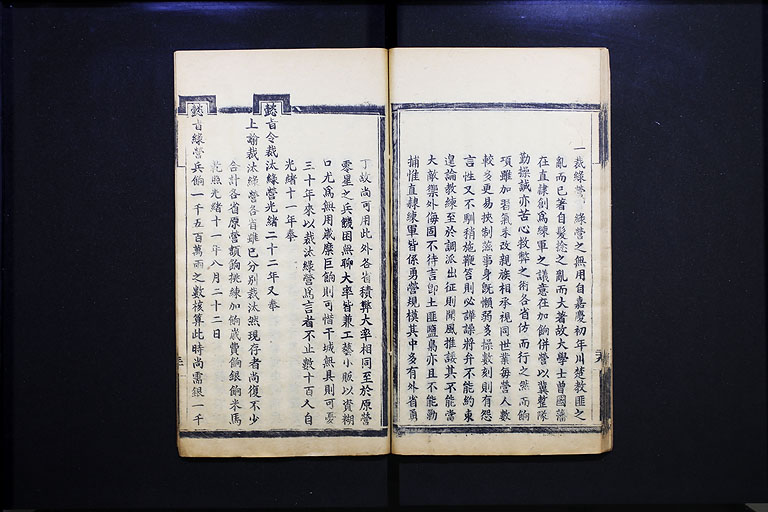 一裁綠營 綠營之無用自嘉慶初年川楚教匪之
亂而已著自髮捻之亂而大著故大學士曾國藩
在直隸創爲練軍之議意在加餉併營以冀整隊
勤操誠亦苦心救弊之術各省仿而行之然而餉
項雖加習氣未改親族相承視同世業每營人數
較多更易挾制滋事身既懶弱多操數刻則有怨
言性又不馴稍施鞭笞則必譁譟將弁不能約束
遑論教練至於調派出征則聞風推諉其不能當
大敵禦外侮固不待言即土匪鹽梟亦且不能勦
捕惟直隸練軍皆係勇營規模其中多有外省勇
丁故尚可用此外各省積弊大率相同至於原營
零星之兵饑困無聊大率皆兼工藝小販以資糊
口尤爲無用歲糜巨餉則可惜干城無具則可憂
三十年來以裁汰綠營爲言者不止數十百人自
光緒十一年奉
懿旨令裁汰綠營光緒二十二年又奉
上諭裁汰綠營各省雖已分別裁汰然現存者尚復不少
合計各省原營額餉挑練加餉歲費餉銀餉米馬
光緒十一年八月二十二日
懿旨綠營兵餉一千五百萬兩之數核算此時尚需銀一千